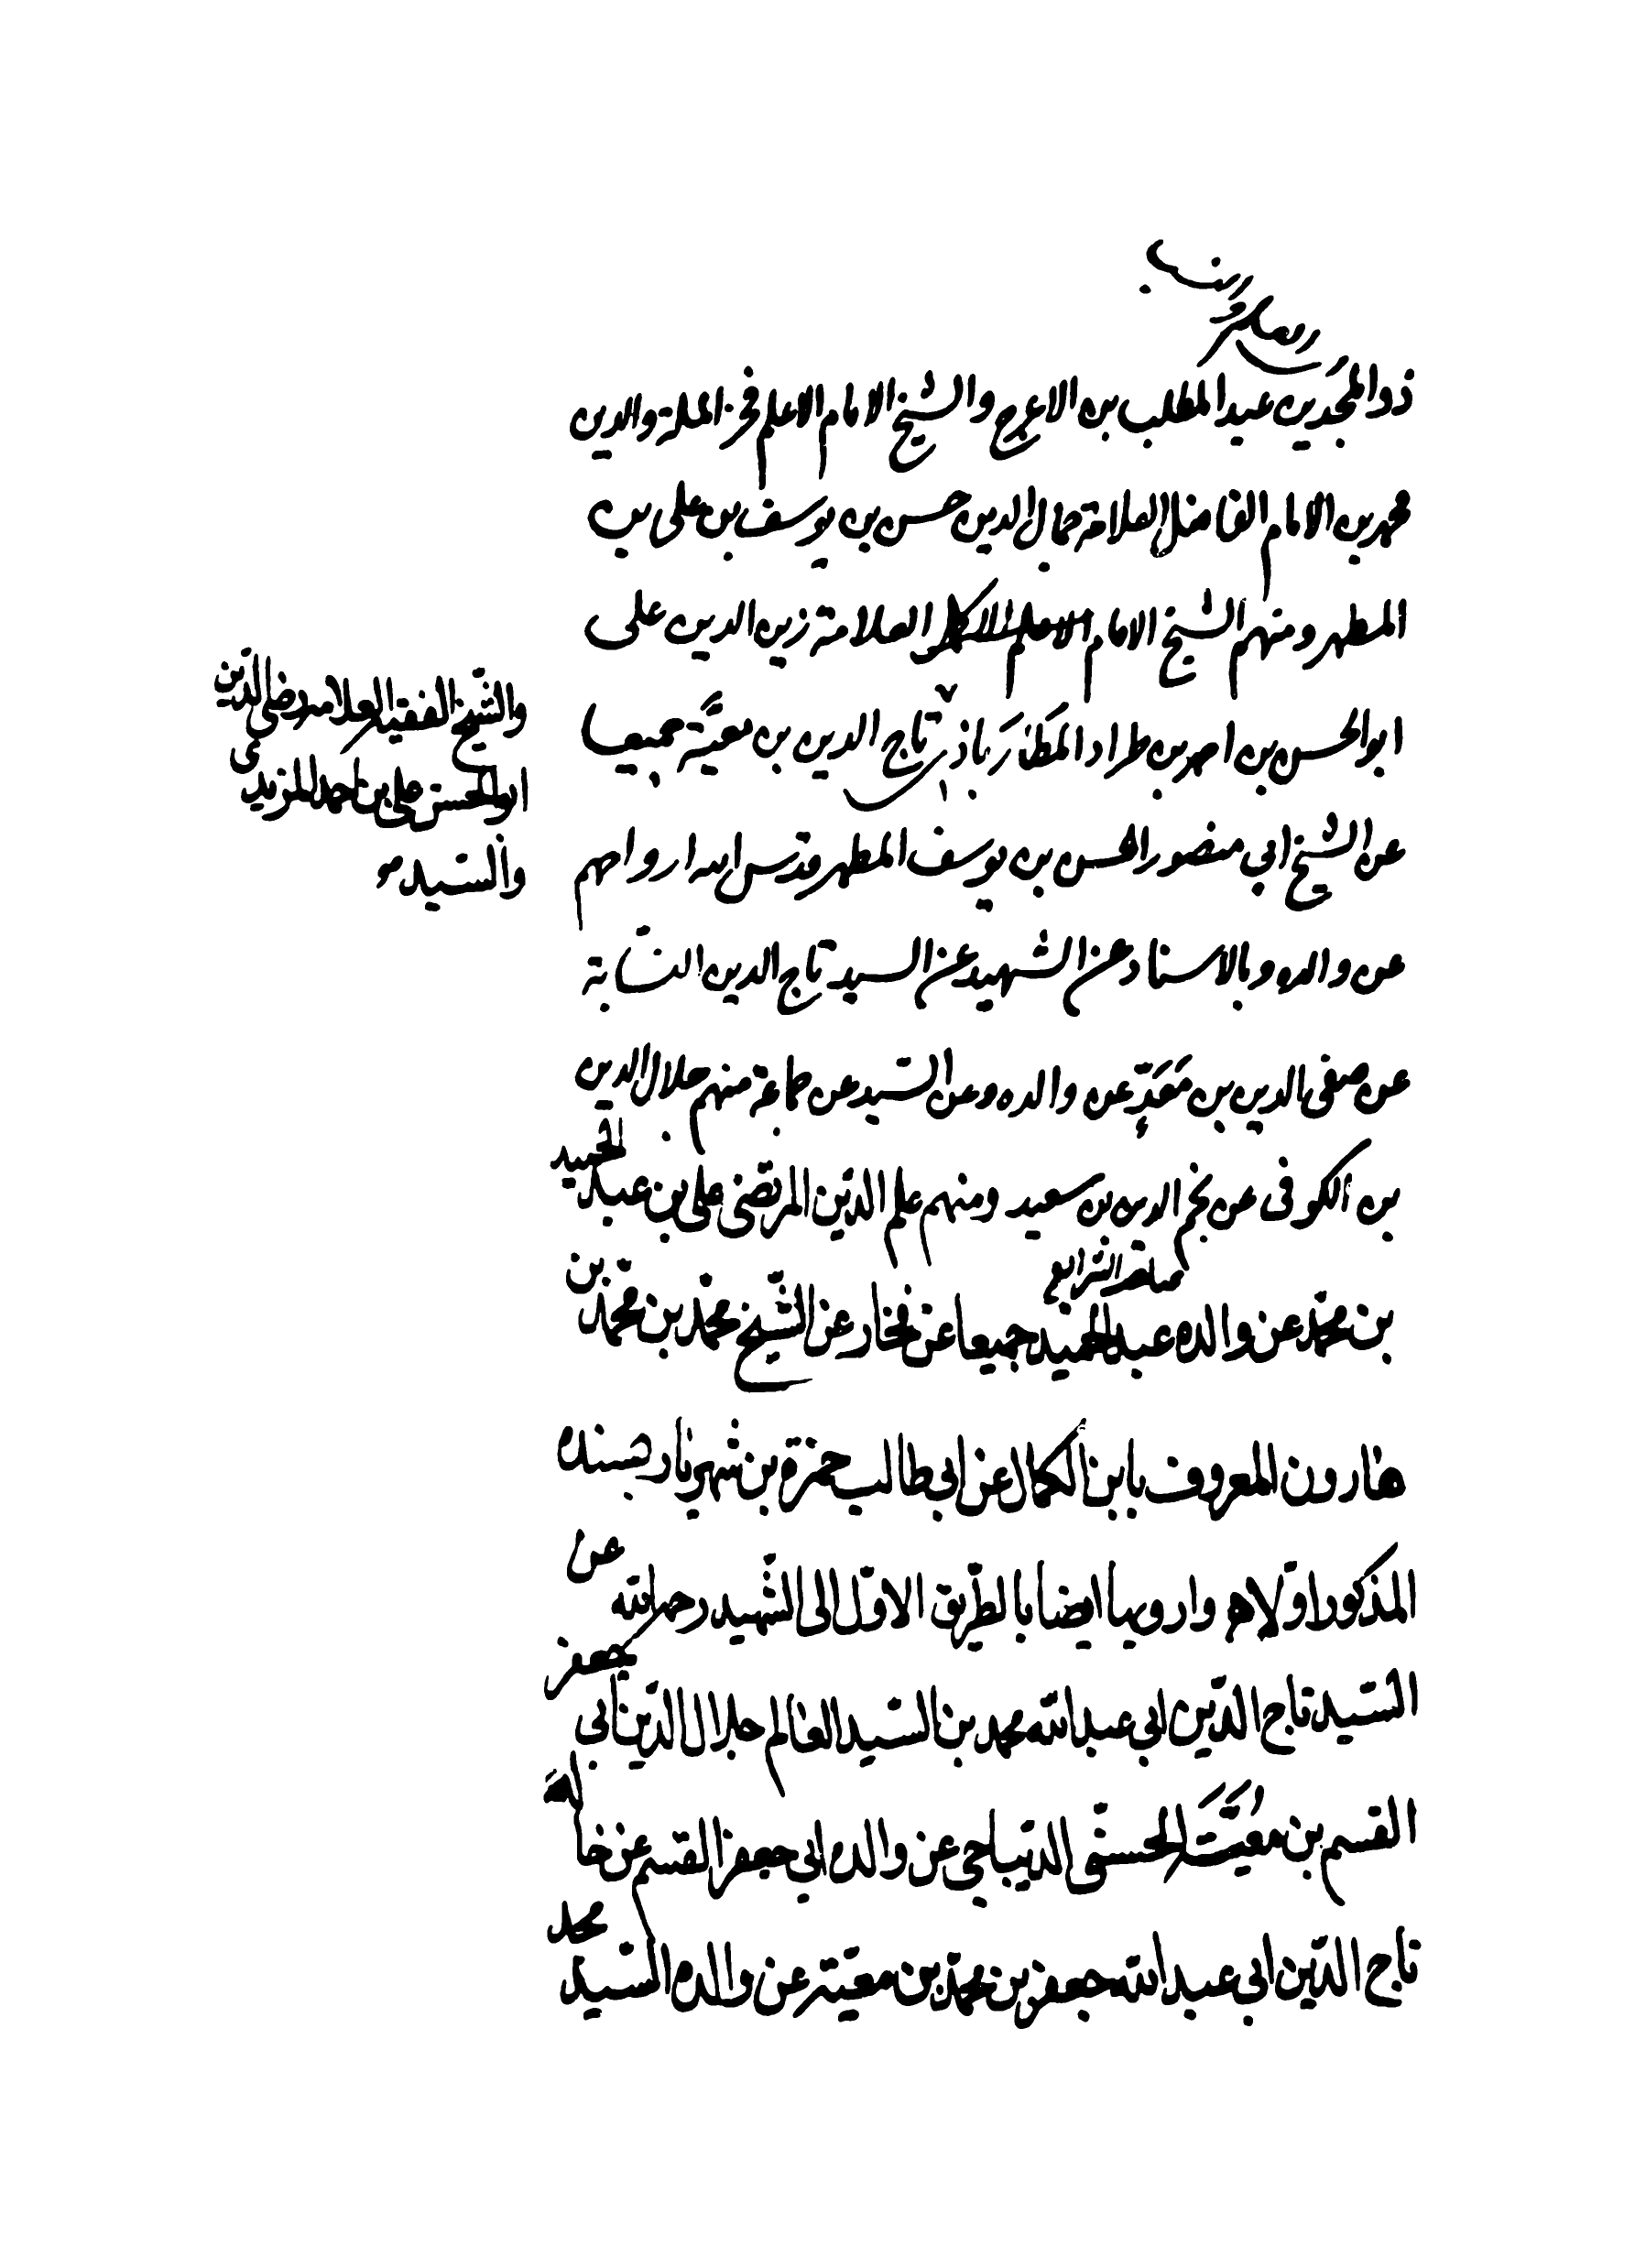 ذو المجدين عبد المطلب بن الاعرج والشيخ الامام الاعلم فخر الملة والدين
محمد بن الامام الفاضل العلامة جمال الدين حسن بن يوسف بن على بن
المطهر ومنهم الشيخ الامام الاعلم الاكمل العلامة زين الدين على
ابو الحسن بن احمد بن طراد المَطارَباذى تاج الدين بن معيَّة جميعا
والشّيخ الفقيه العلامه رضى الدّين
ابو الحسن على بن احمد المزيدى
والسّيد
عن الشيخ ابي منصور الحسن بن يوسف المطهر وقدس الله ارواحهم
عن والده وبالاسناد عن الشهيد عن السيد تاج الدين النسّابة
عن صفى الدين بن مَعَدٍّ عن والده وعن السّيد عن جماعة منهم جلال الدين
بن الكوفى عن نجم الدين بن سعيد ومنهم علم الدّين المرتضى على بن عبد الحميد
بن محمّد عن والده عبد الحميد جميعا عن فخار عن الشّيخ محمّد بن محمّد بن
هارون المعروف بابن الكمال عن ابى طالب حمزة بن شهريار بسنده
المذكور اوّلا وارويها ايضا بالطّريق الاوّل الى الشّهيد رحمه الله عن
السّيد تاج الدّين ابى عبد الله محمد بن السّيد العالم جلال الدّين ابى جعفر
القسم بن مُعَيَّة الحسنّى الدّيباجى عن والده ابى جعفر القسم عن خاله
تاج الدّين ابى عبد الله جعفر بن محمّد بن معيّة عن والده السّيد محمد